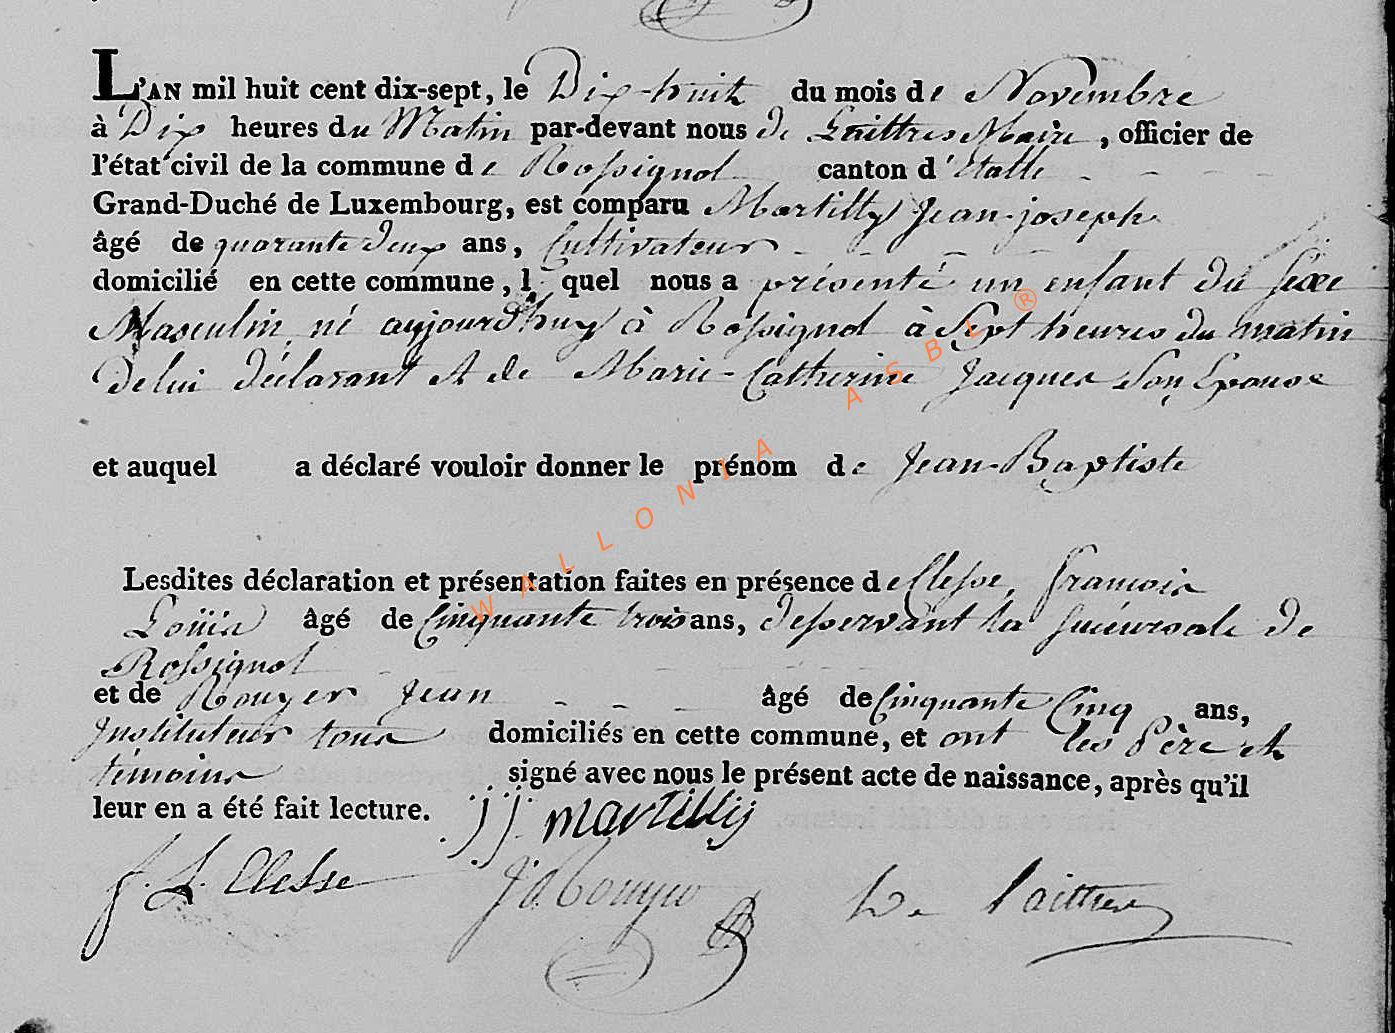 L'AN mil huit cent dix-sept, le Dix-huit du mois de Novembre
à Dix heures du Matin par-devant nous de Laittres Maire, officier de
l'état civil de la commune de Rossignol canton d'Etalle
Grand-Duché de Luxembourg, est comparu Martilly Jean-joseph
âgé de quarante deux ans, Cultivateur
domicilié en cette commune, lequel nous a présenté un enfant du sexe
Masculin, né aujourd'huy à Rossignol à Sept heures du matin
de lui déclarant et de Marie-Catherine Jacques Son Epouse
et auquel a déclaré vouloir donner le prénom de Jean-Baptiste
Lesdites déclaration et présentation faites en présence de Clesse, francois
Loüis âgé de Cinquante trois ans, desservant la succursale de
Rossignol
et de Rouyer Jean âgé de Cinquante Cinq ans,
Instituteur tous domiciliés en cette commune, et ont les Père et
témoins signé avec nous le présent acte de naissance, après qu'il
leur en a été fait lecture. jj martilly
f. L. Clesse J Rouyer De Laittres
WALLONIA ASBL ®